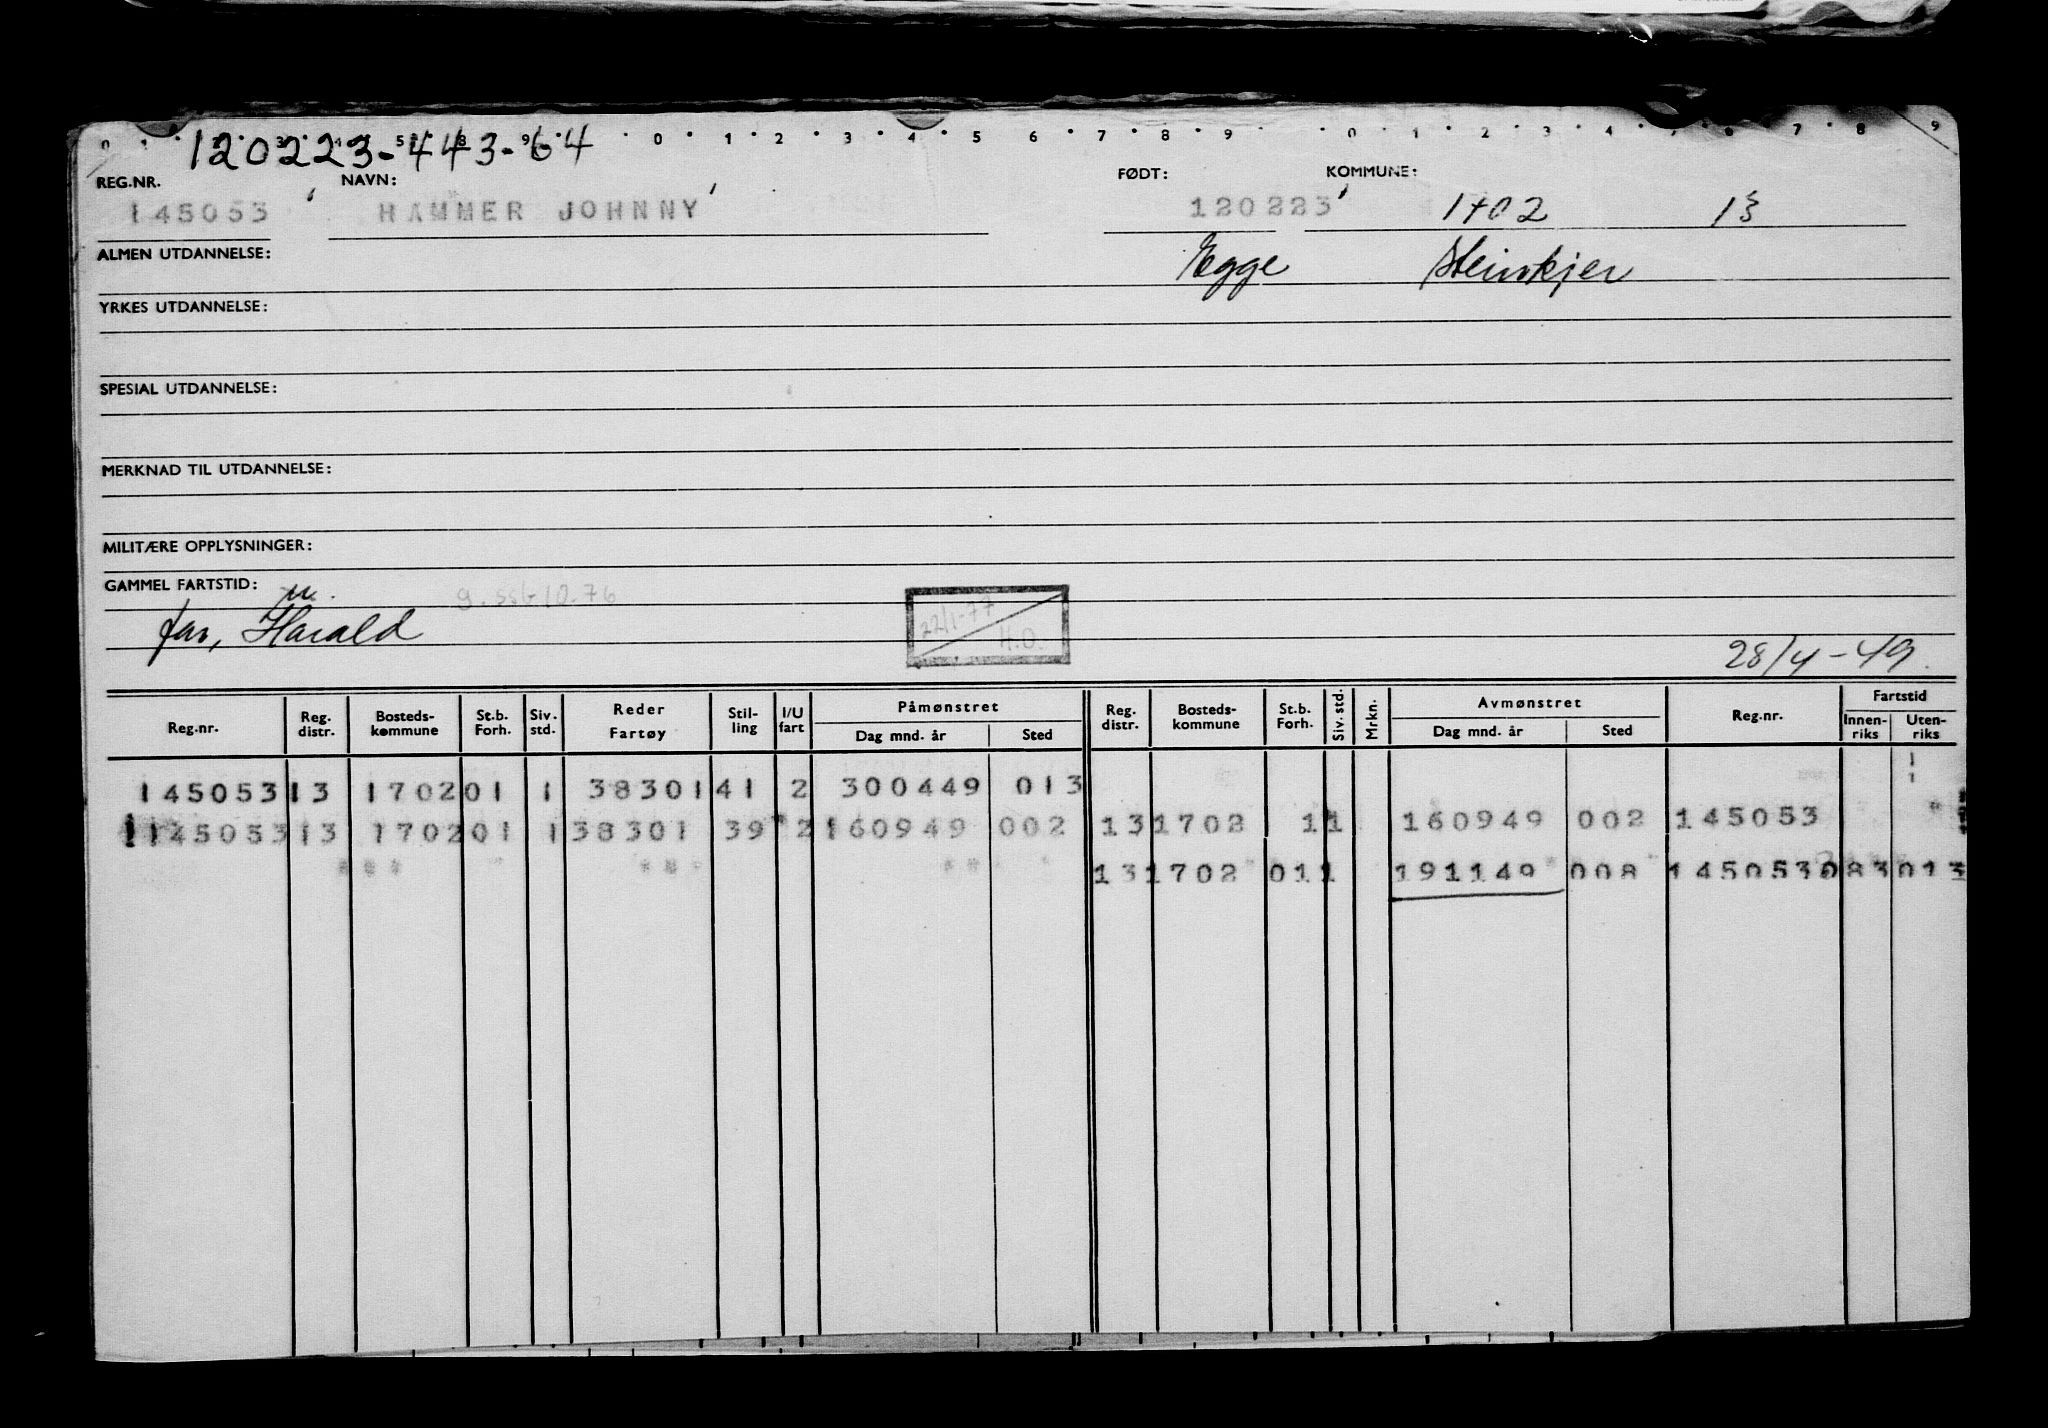 120223-443-64
REG.NR. NAVN: FØDT: KOMMUNE:
145053 HAMMER JOHNNY 120223 1702 13
ALMEN UTDANNELSE: Egge Steinkjer
YRKES UTDANNELSE:
SPESIAL UTDANNELSE:
MERKNAD TIL UTDANNELSE:
MILITÆRE OPPLYSNINGER:
GAMMEL FARTSTID:
far, Harald
22/1-77
H.O.
28/4-49
Reg.nr. Reg. distr. Bosteds-kommune St.b. Forh. Siv. std. Reder Fartøy Stil-ling I/U fart Påmønstret Dag mnd. år Sted Reg. distr. Bosteds-kommune St.b. Forh. Siv. std. Mrkn. Avmønstret Dag mnd. år Sted Reg.nr. Fartstid Innen-riks Uten-riks
145053 13 1702 01 1 38301 41 2 300449 013
145053 13 1702 01 1 38301 39 2 160949 002 13 1702 1 1 160949 002 145053
13 1702 01 1 191149 008 145053 083 013